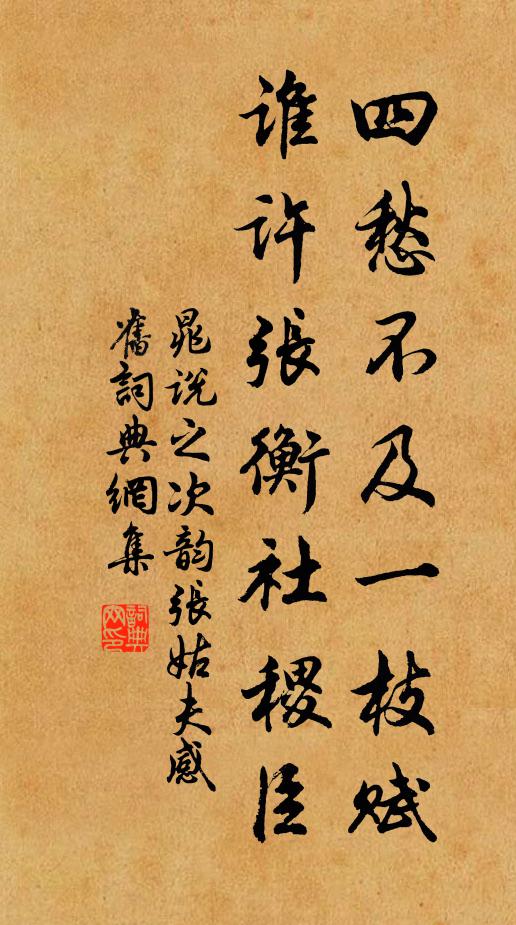 四愁不及一枝赋
谁许張衡社稷臣
晁说之次韵張姑夫感
舊詞典網集
詞典
网印